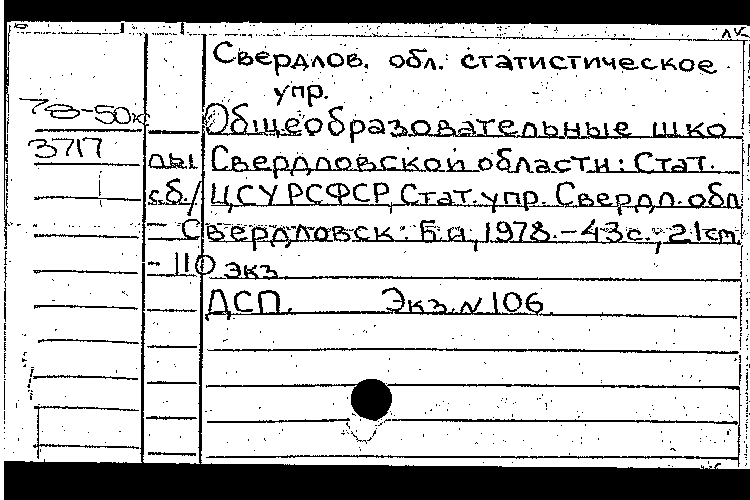 Свердлов. обл. статистическое
упр.
78-50к Общеобразовательные шко
3717 лы Свердловской области: Стат.
сб./ ЦСУ РСФСР, Стат. упр. Свердл. обл
- Свердловск: Б.и., 1978. - 43с.; 21cm.
- 110 экз
ДСП. Экз. N 106.